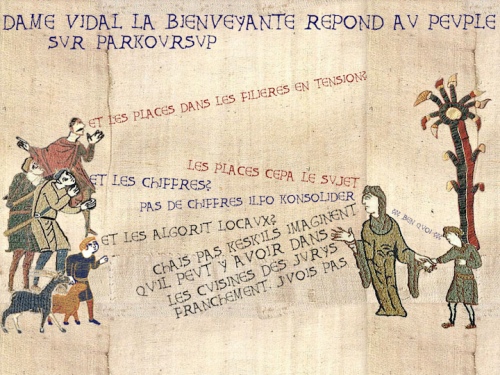 DAME VIDAL LA BIENVEYANTE REPOND AU PEUPLE
SUR PARKOURSUP
ET LES PLACES DANS LES FILIERES EN TENSION?
LES PLACES CEPA LE SUJET
ET LES CHIFFRES?
PAS DE CHIFFRES ILFO KONSOLIDER
ET LES ALGORIT LOCAUX?
CHAIS PAS KESK'ILS IMAGINENT
QU'IL PEUT Y AVOIR DANS
LES CUISINES DES JURYS
FRANCHEMENT. JVOIS PAS
<< BEN QUOI <<